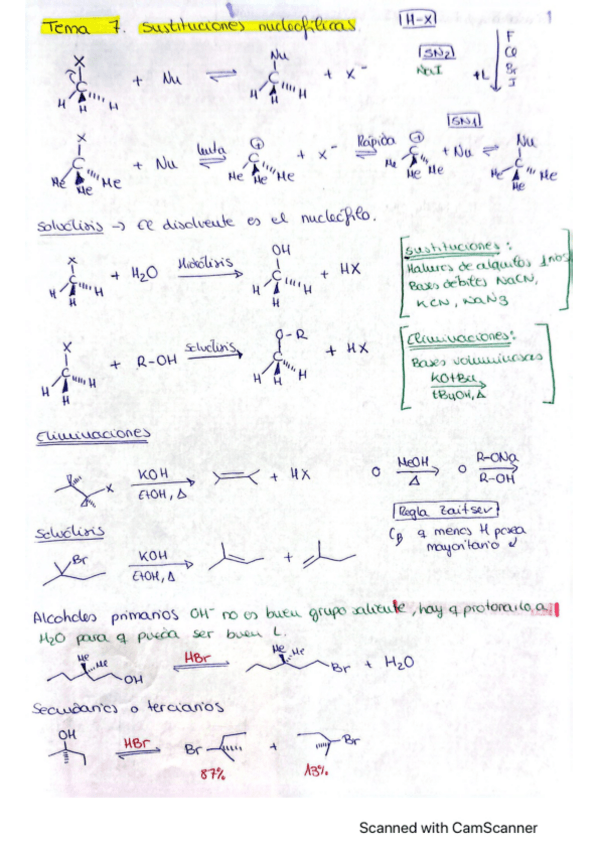 Tema 7. Sustituciones nucleofílicas. H-X 1
SN2
NaI
+L F
Cl
Br
I
X C H H H + Nu ⇌ Nu C H H H + X⁻
SN1
X C Me Me Me + Nu lenta ⇌ ⊕ C Me Me Me + X⁻ Rápida ⇌ ⊕ C Me Me Me + Nu ⇌ Nu C Me Me Me
Solvólisis → el disolvente es el nucleófilo.
X C H H H + H₂O Hidrólisis → OH C H H H + HX
Sustituciones:
Haluros de alquilos 1rios
Bases débiles NaCN,
KCN, NaN3
X C H H H + R-OH Solvólisis → O-R C H H H + HX
Eliminaciones:
Bases voluminosas
KOtBu
tBuOH, Δ
Eliminaciones
X KOH → EtOH, Δ + HX o MeOH → Δ o R-ONa → R-OH
Regla Zaitsev
Cβ q menos H posea
mayoritario
Solvólisis
Br KOH → EtOH, Δ +
Alcoholes primarios OH⁻ no es buen grupo saliente, hay q protonarlo a
H₂O para q pueda ser buen L.
Me Me OH HBr ⇌ Me Me Br + H₂O
Secundarios o terciarios
OH HBr ⇌ Br + Br
87% 13%
Scanned with CamScanner